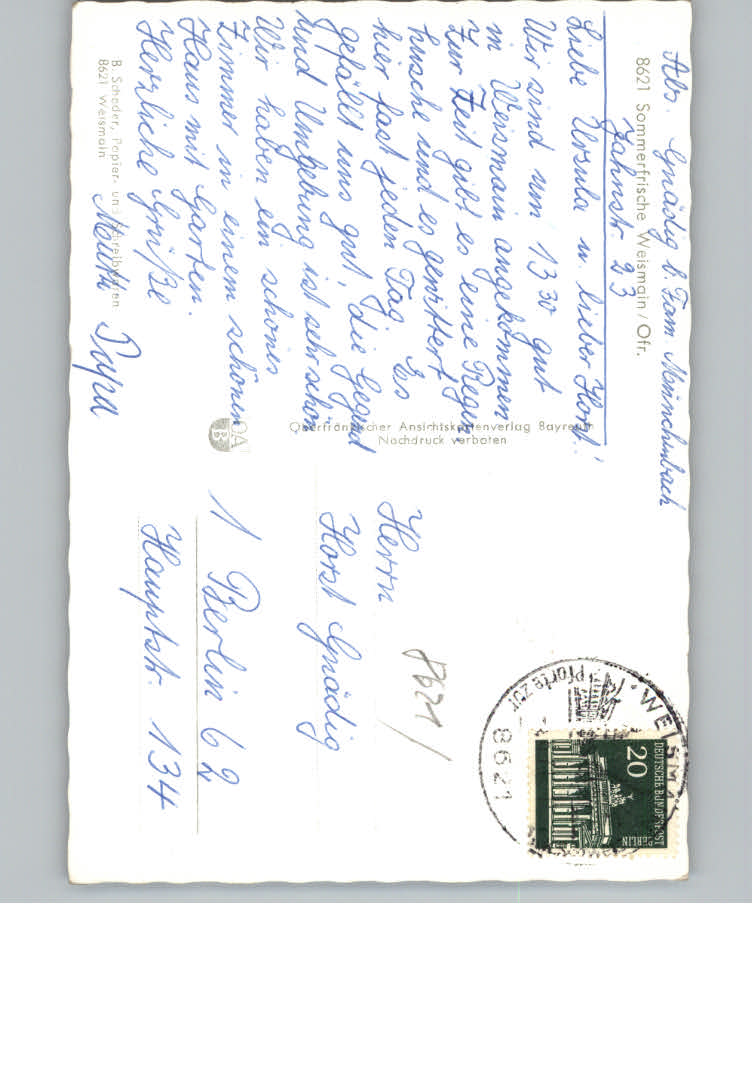 Abs. Gnädig b. Fam. Münchenbach
8621 Sommerfrische Weismain / Ofr.
Jahnstr. 23
Liebe Ursula u. lieber Horst!
Wir sind um 13 30 gut
in Weismain angekommen
Zur Zeit gibt es eine Regen
husche und es gewittert
hier fast jeden Tag. Es
gefällt uns gut, die Gegend
und Umgebung ist sehr schön
Wir haben ein schönes
Zimmer in einem schönen
Haus mit Garten.
Herzliche Grüße
Mutti Papa
B. Schoder, Papier- und Schreibwaren
8621 Weismain
Oberfränkischer Ansichtskartenverlag Bayreuth
Nachdruck verboten
OA
B
Herrn
Horst Gnädig
1 Berlin 62
Hauptstr. 134
8621/
WEISMA
Pforte zur
8621
20
DEUTSCHE BUNDESPOST
BERLIN